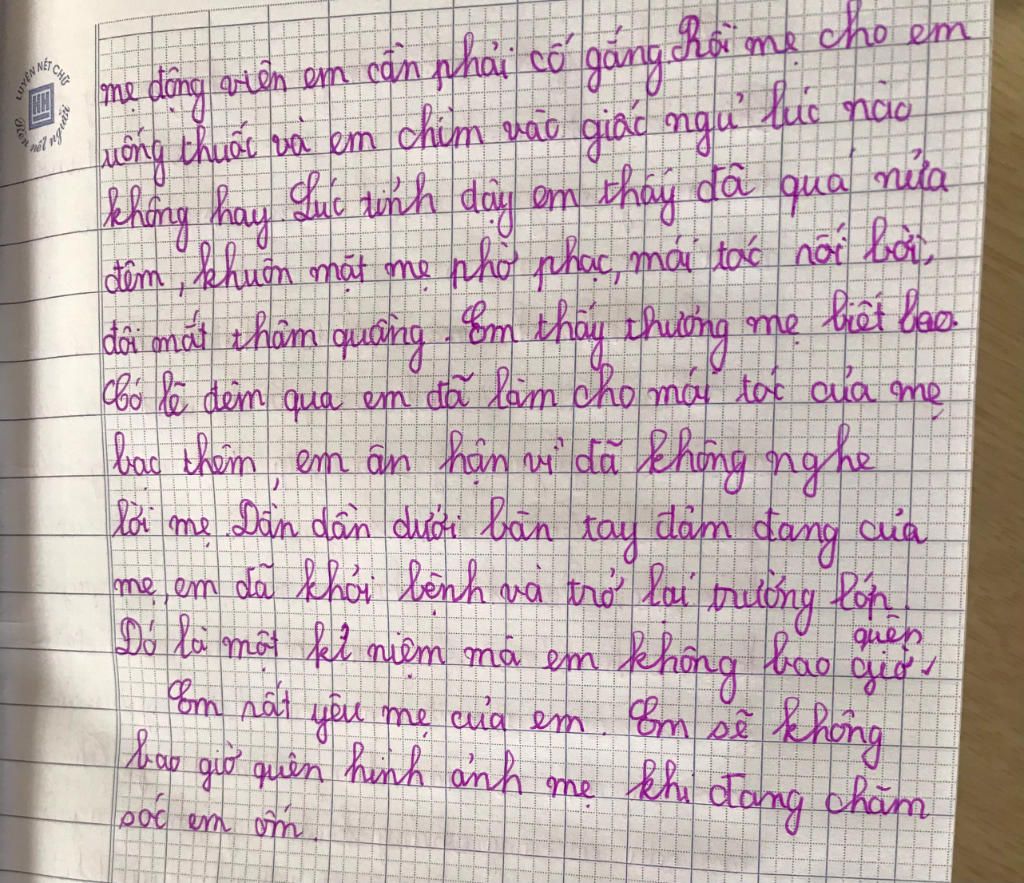 LUYỆN NÉT CHỮ
HH
Rèn nết người
mẹ động viên em cần phải cố gắng. Rồi mẹ cho em
uống thuốc và em chìm vào giấc ngủ lúc nào
không hay. Lúc tỉnh dậy em thấy đã quá nửa
đêm, khuôn mặt mẹ phờ phạc, mái tóc rối bời,
đôi mắt thâm quầng. Em thấy thương mẹ biết bao.
Có lẽ đêm qua em đã làm cho mái tóc của mẹ
bạc thêm, em ân hận vì đã không nghe
lời mẹ. Dần dần dưới bàn tay đảm đang của
mẹ, em đã khỏi bệnh và trở lại trường lớp.
Đó là một kỉ niệm mà em không bao giờ quên.
Em rất yêu mẹ của em. Em sẽ không
bao giờ quên hình ảnh mẹ khi đang chăm
sóc em ốm.